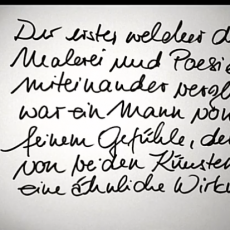 Der erste welcher d
Malerei und Poesi
miteinander vergl
war ein Mann von
feinem Gefühle, de
von beiden Künsten
eine ähnliche Wirku